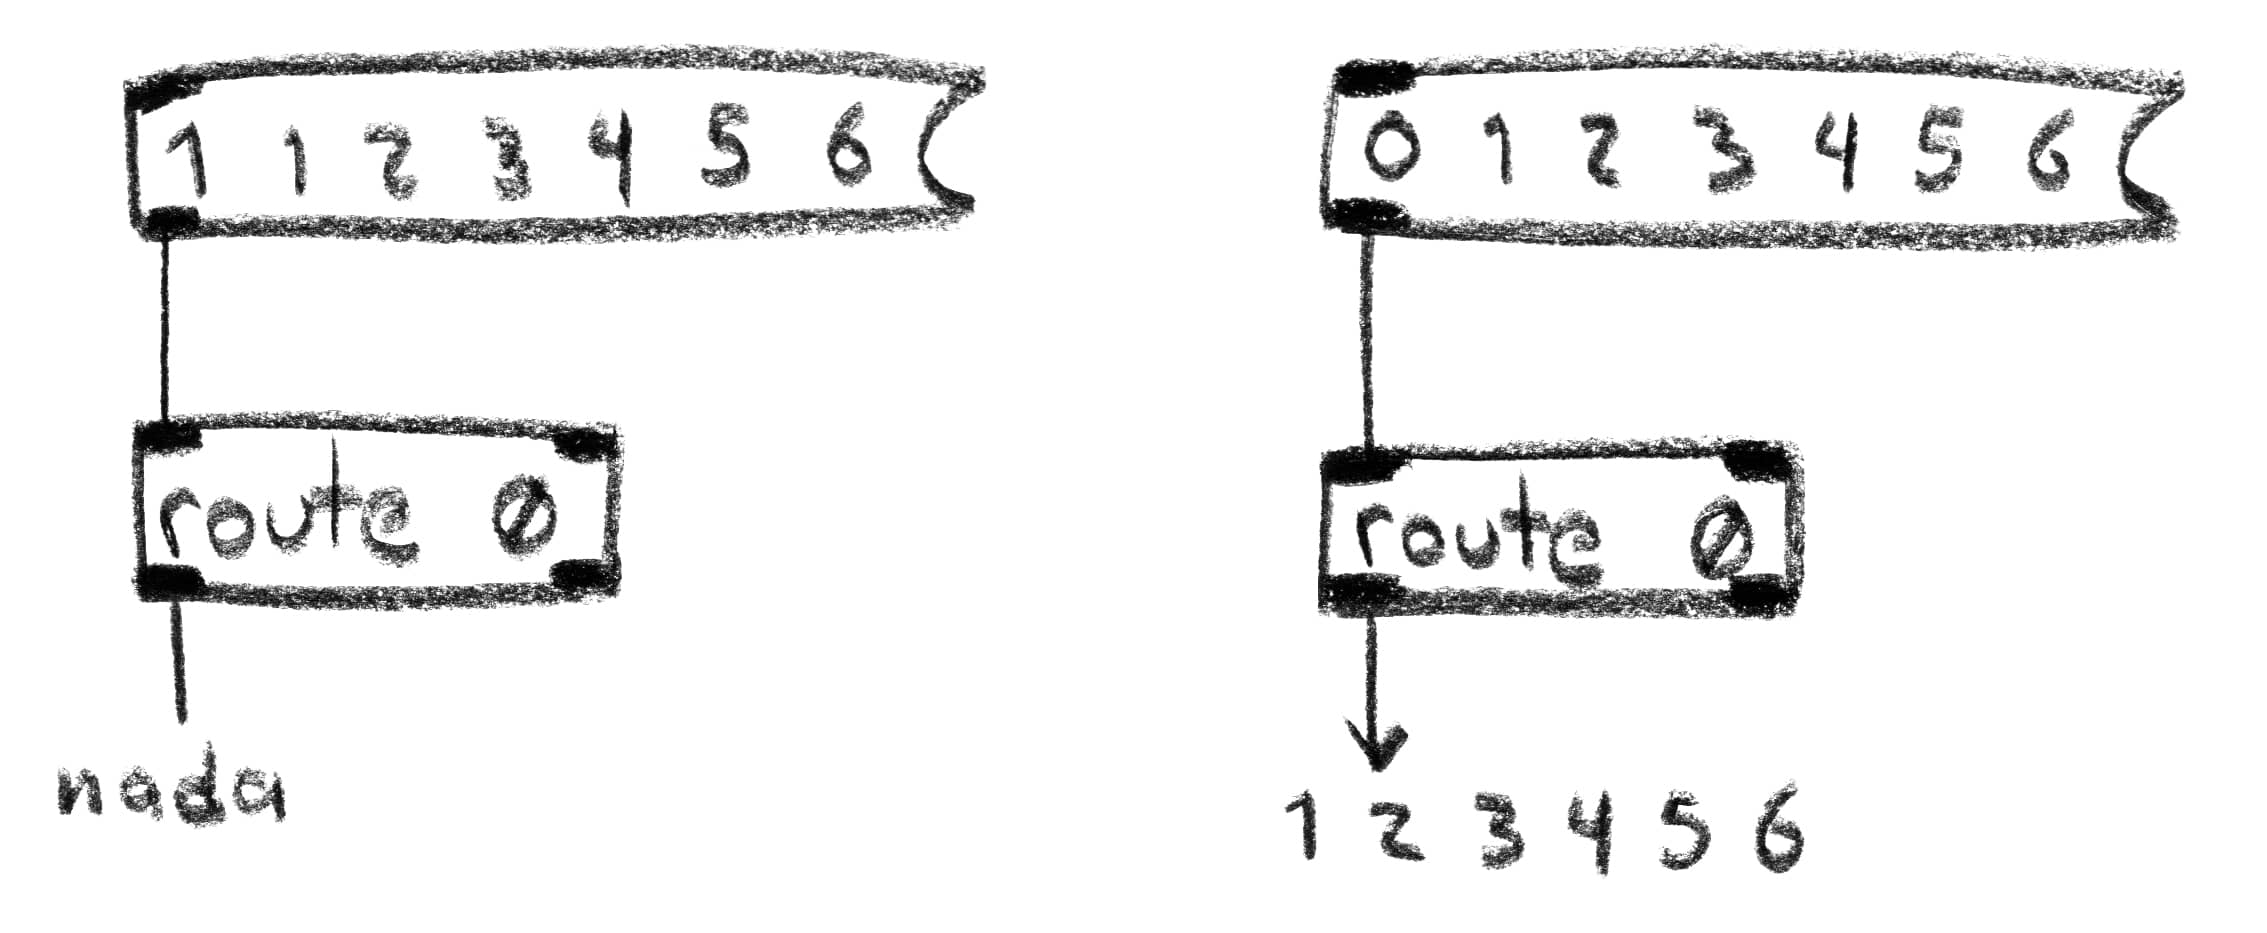 1 1 2 3 4 5 6
route 0
nada
0 1 2 3 4 5 6
route 0
1 2 3 4 5 6